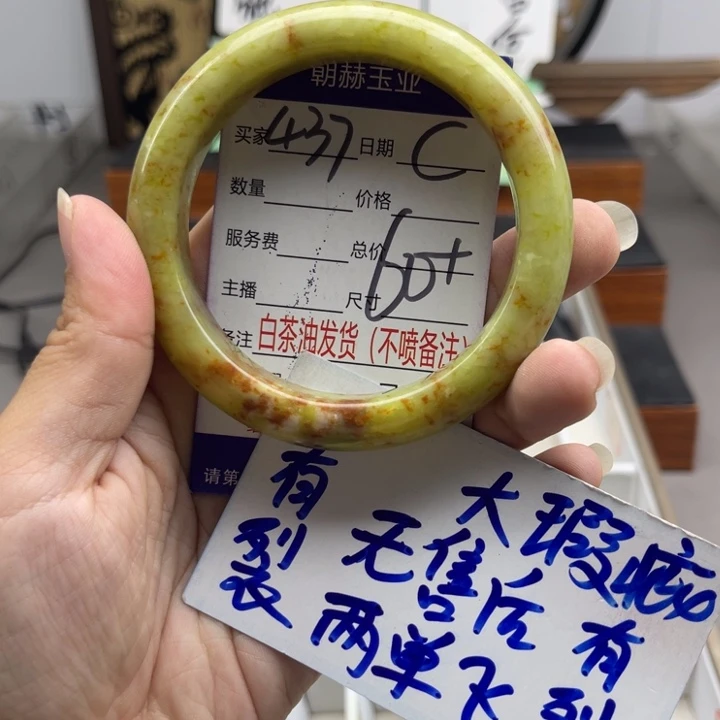 朝赫玉业
买家 437 日期 C
数量 价格
服务费 总价 60+
主播 尺寸
备注 白茶油发货（不喷备注）
请第
有裂
大瑕疵
无售后 有裂
两单飞